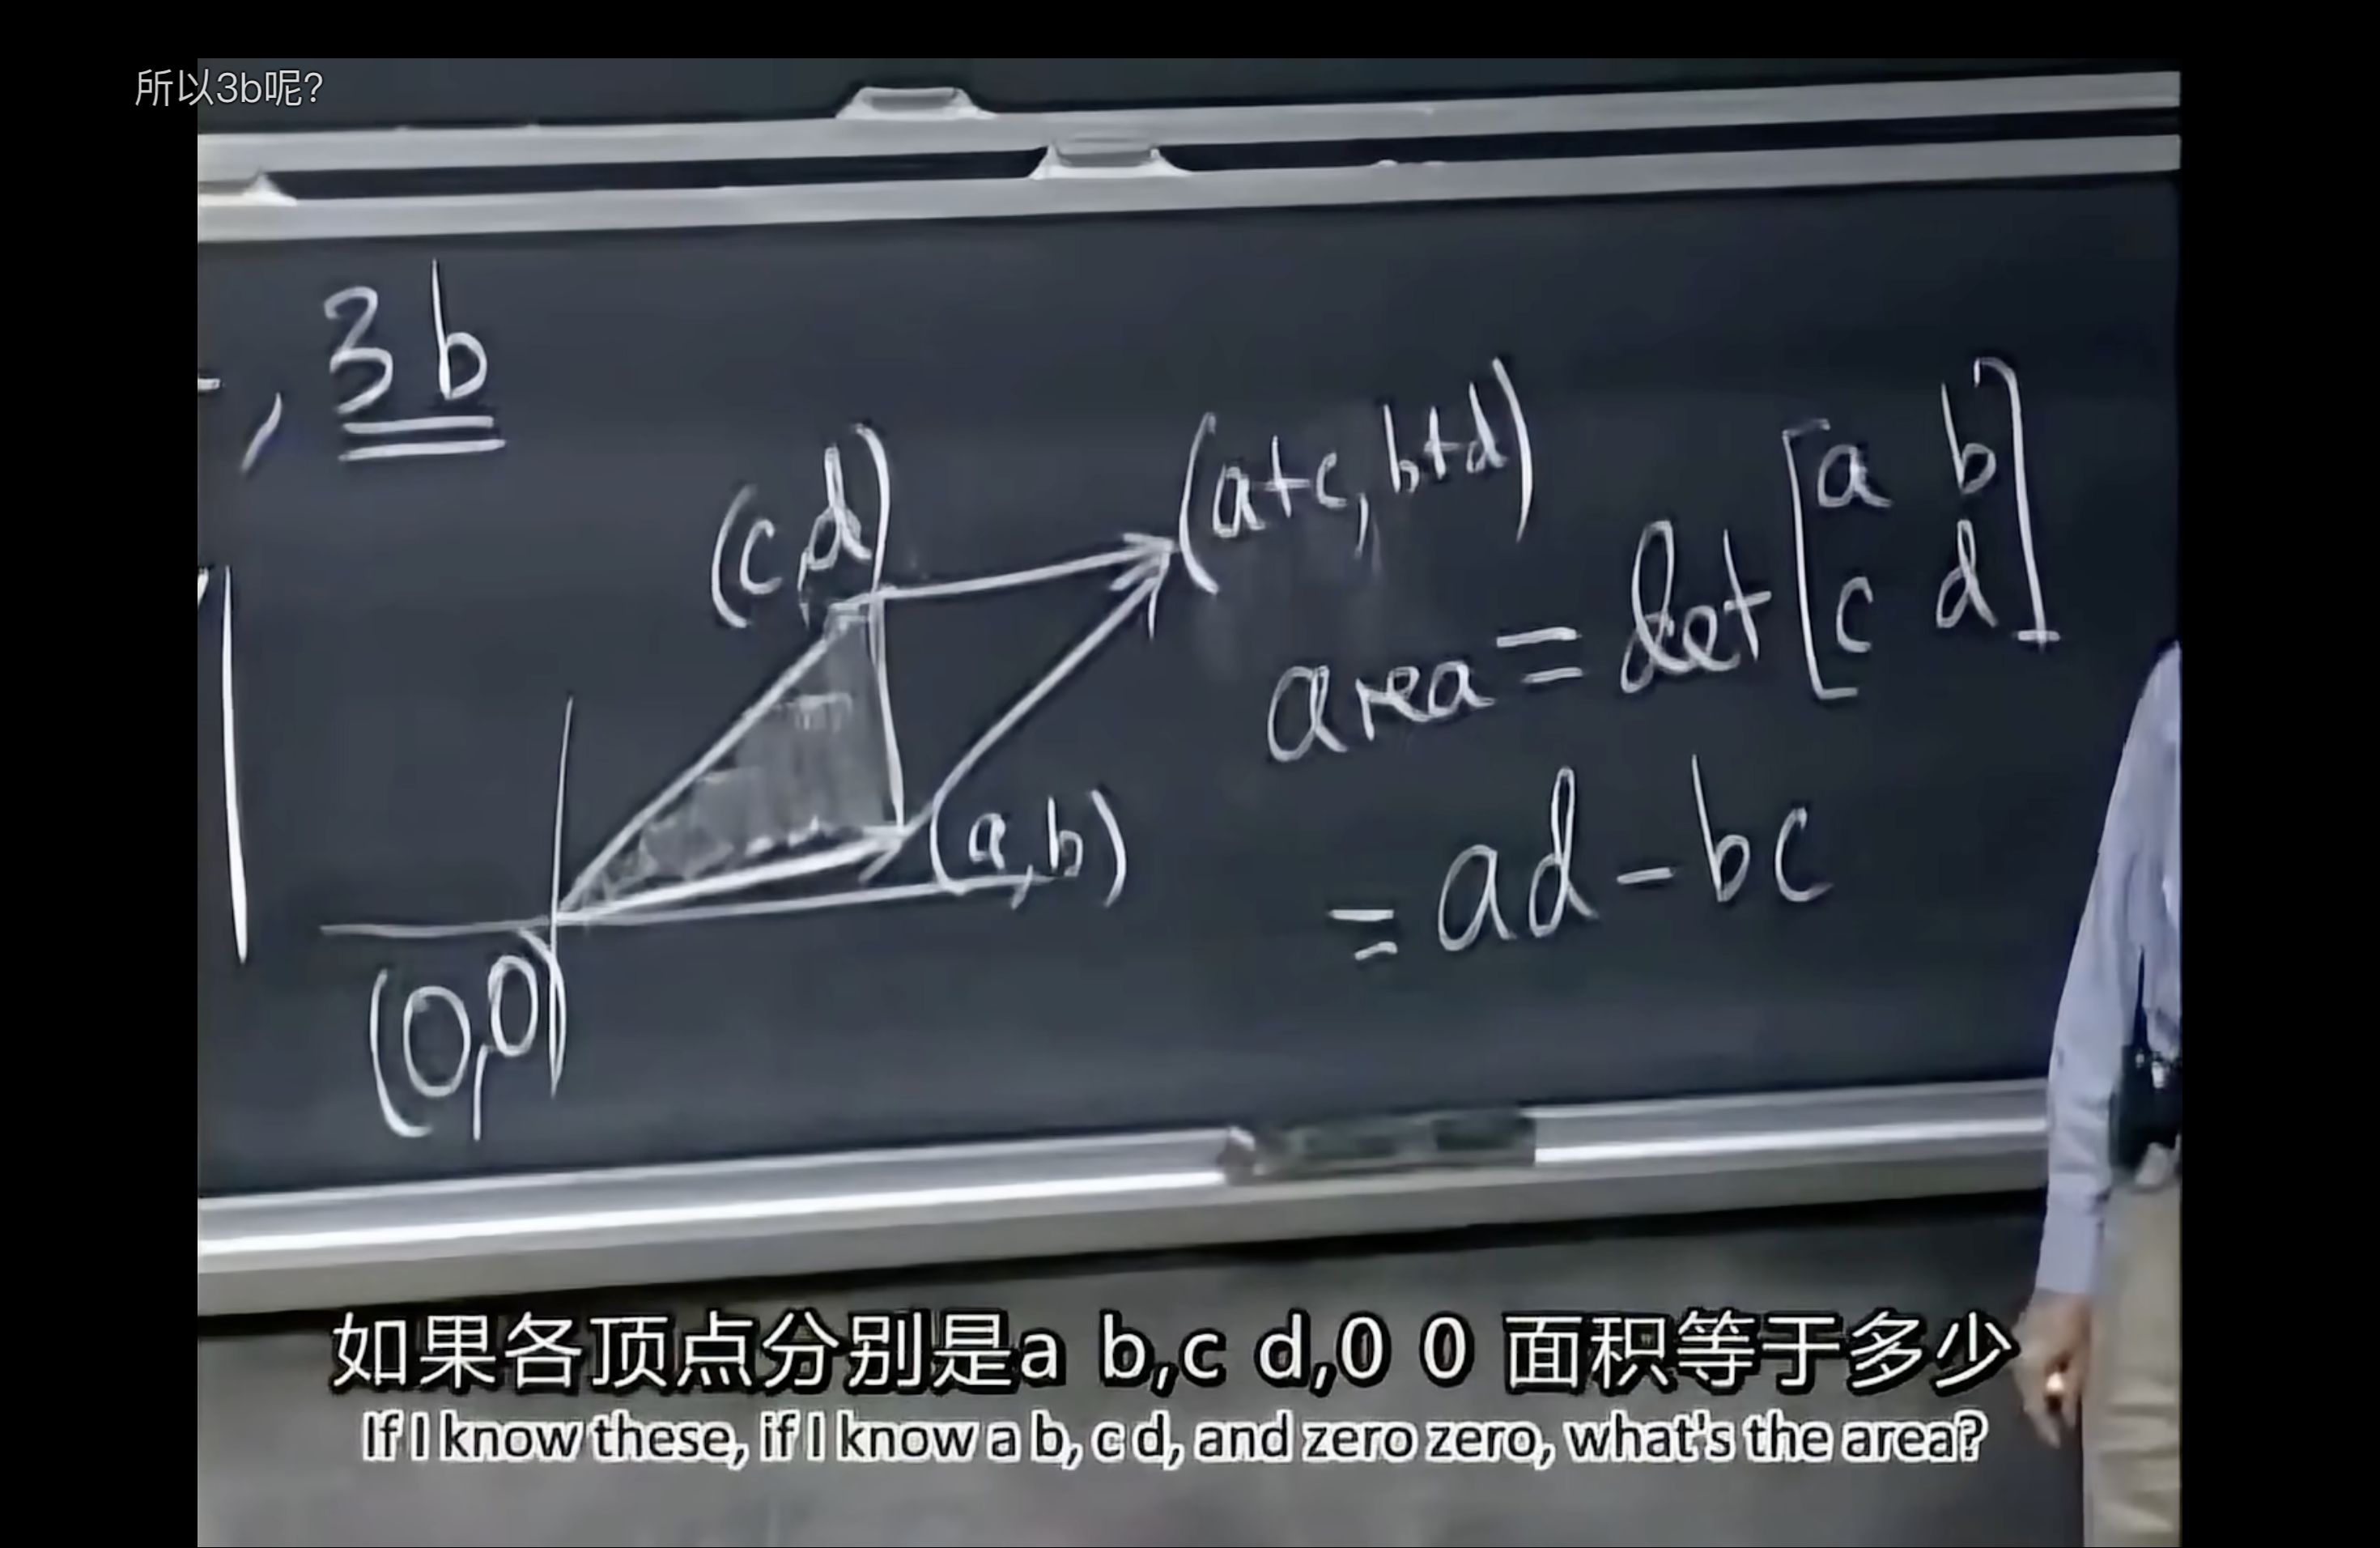 所以3b呢?
, 3b
(c,d)
(a+c, b+d)
area = det [a b
c d]
(a,b)
= ad - bc
(0,0)
如果各顶点分别是a b,c d,0 0 面积等于多少
If I know these, if I know a b, c d, and zero zero, what's the area?